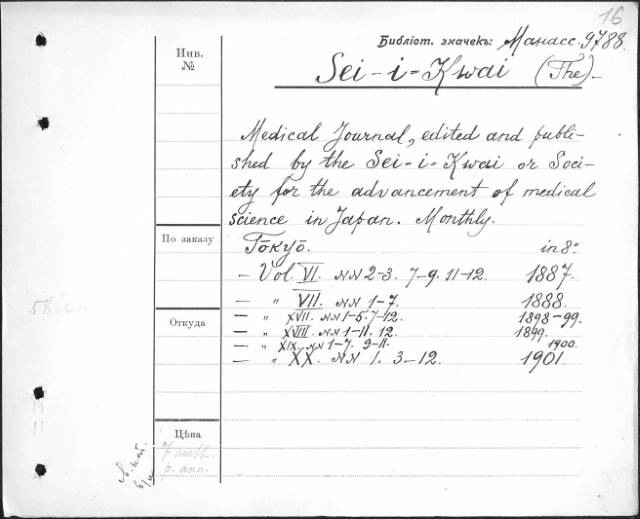 16
Библіот. значекъ: Манасс. 9788.
Инв.
№
Sei-i-Kwai (The).
Medical Journal, edited and publi-
shed by the Sei-i-Kwai or Soci-
ety for the advancement of medical
science in Japan. Monthly.
По заказу
Tōkyō. in 8º
— Vol. VI. NN 2-3. 7-9. 11-12. 1887.
— " VII. NN 1-7. 1888.
— " XVII. NN 1-5. 7-12. 1898-99.
Откуда
— " XVIII. NN 1-11. 12. 1899.
— " XIX. NN 1-7. 9-11. 1900.
— " XX. NN 1. 3-12. 1901.
Цѣна
p. ann.